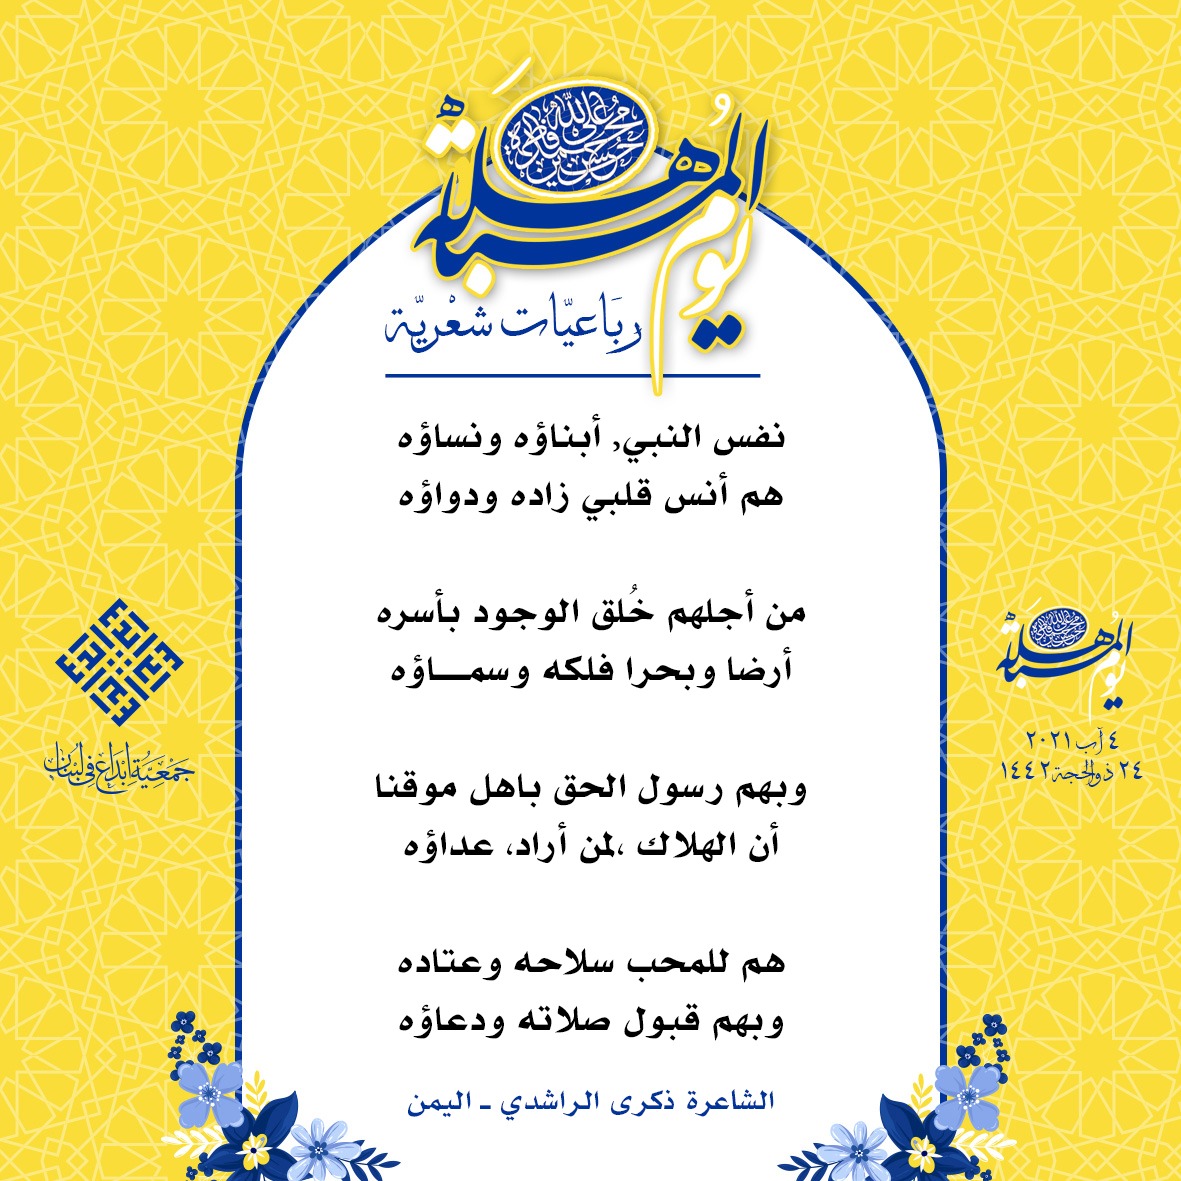 يوم المباهلة
محمد علي فاطمة حسن حسين
رباعيّات شعْريّة
نفس النبي, أبناؤه ونساؤه
هم أنس قلبي زاده ودواؤه
من أجلهم خُلق الوجود بأسره
أرضا وبحرا فلكه وسمـــاؤه
وبهم رسول الحق باهل موقنا
أن الهلاك ،لمن أراد، عداؤه
هم للمحب سلاحه وعتاده
وبهم قبول صلاته ودعاؤه
الشاعرة ذكرى الراشدي ـ اليمن
يوم المباهلة
٤ آب ٢٠٢١
٢٤ ذو الحجة ١٤٤٢
جمعيّة إبداع في لبنان